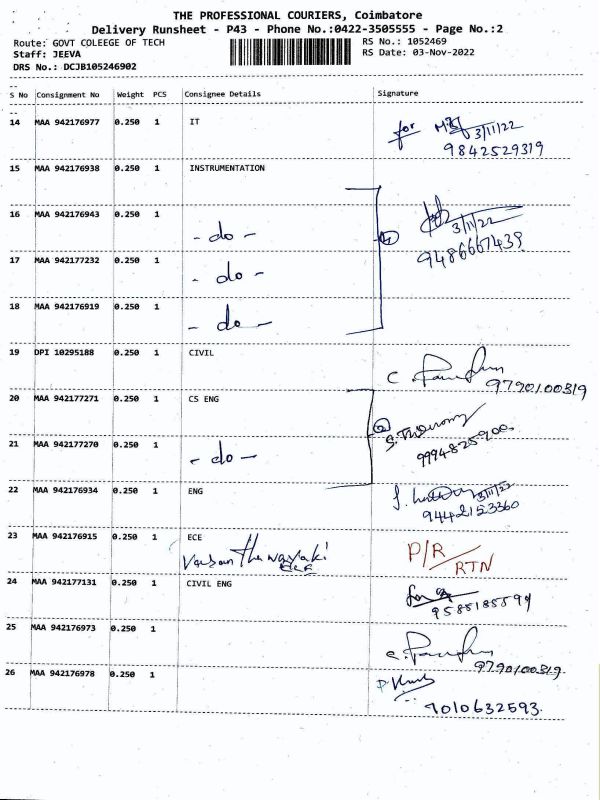 THE PROFESSIONAL COURIERS, Coimbatore
Delivery Runsheet - P43 - Phone No.:0422-3505555 - Page No.:2
Route: GOVT COLEEGE OF TECH RS No.: 1052469
Staff: JEEVA RS Date: 03-Nov-2022
DRS No.: DCJB105246902
S No Consignment No Weight PCS Consignee Details Signature
14 MAA 942176977 0.250 1 IT for 3/11/22
9842529319
15 MAA 942176938 0.250 1 INSTRUMENTATION
16 MAA 942176943 0.250 1 - do - 3/11/22
9486667439
17 MAA 942177232 0.250 1 - do -
18 MAA 942176919 0.250 1 - do -
19 DPI 10295188 0.250 1 CIVIL
9790100319
20 MAA 942177271 0.250 1 CS ENG
21 MAA 942177270 0.250 1 - do -
22 MAA 942176934 0.250 1 ENG 3/11/22
9442153360
23 MAA 942176915 0.250 1 ECE P/R
ECE RTN
24 MAA 942177131 0.250 1 CIVIL ENG for
25 MAA 942176973 0.250 1
9790100319
26 MAA 942176978 0.250 1
9010632593